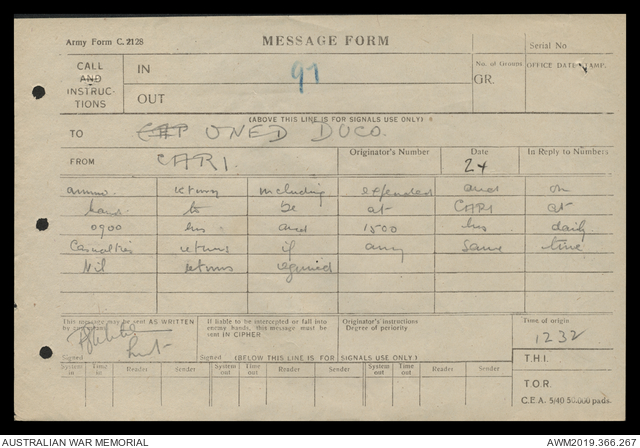 Army Form C. 2128
MESSAGE FORM
Serial No
CALL AND INSTRUCTIONS
IN
97
No. of Groups
GR.
OFFICE DATE STAMP.
OUT
(ABOVE THIS LINE IS FOR SIGNALS USE ONLY)
TO UNED DUCO.
FROM CARI.
Originator's Number
Date 24
In Reply to Number
ammo. returns including expended and on
hand to be at CARI at
0900 hrs and 1500 hrs daily
Casualties returns if any same time
Nil returns required
This message may be sent AS WRITTEN by any means
If liable to be intercepted or fall into enemy hands, this message must be sent IN CIPHER
Originator's instructions
Degree of periority
Time of origin
1232
Signed Lieut
Signed
(BELOW THIS LINE IS FOR SIGNALS USE ONLY)
T.H.I.
System in Time in Reader Sender System out Time out Reader Sender System out Time out Reader Sender
T.O.R.
C.E.A. 5/40 50,000 pads.
AUSTRALIAN WAR MEMORIAL
AWM2019.366.267